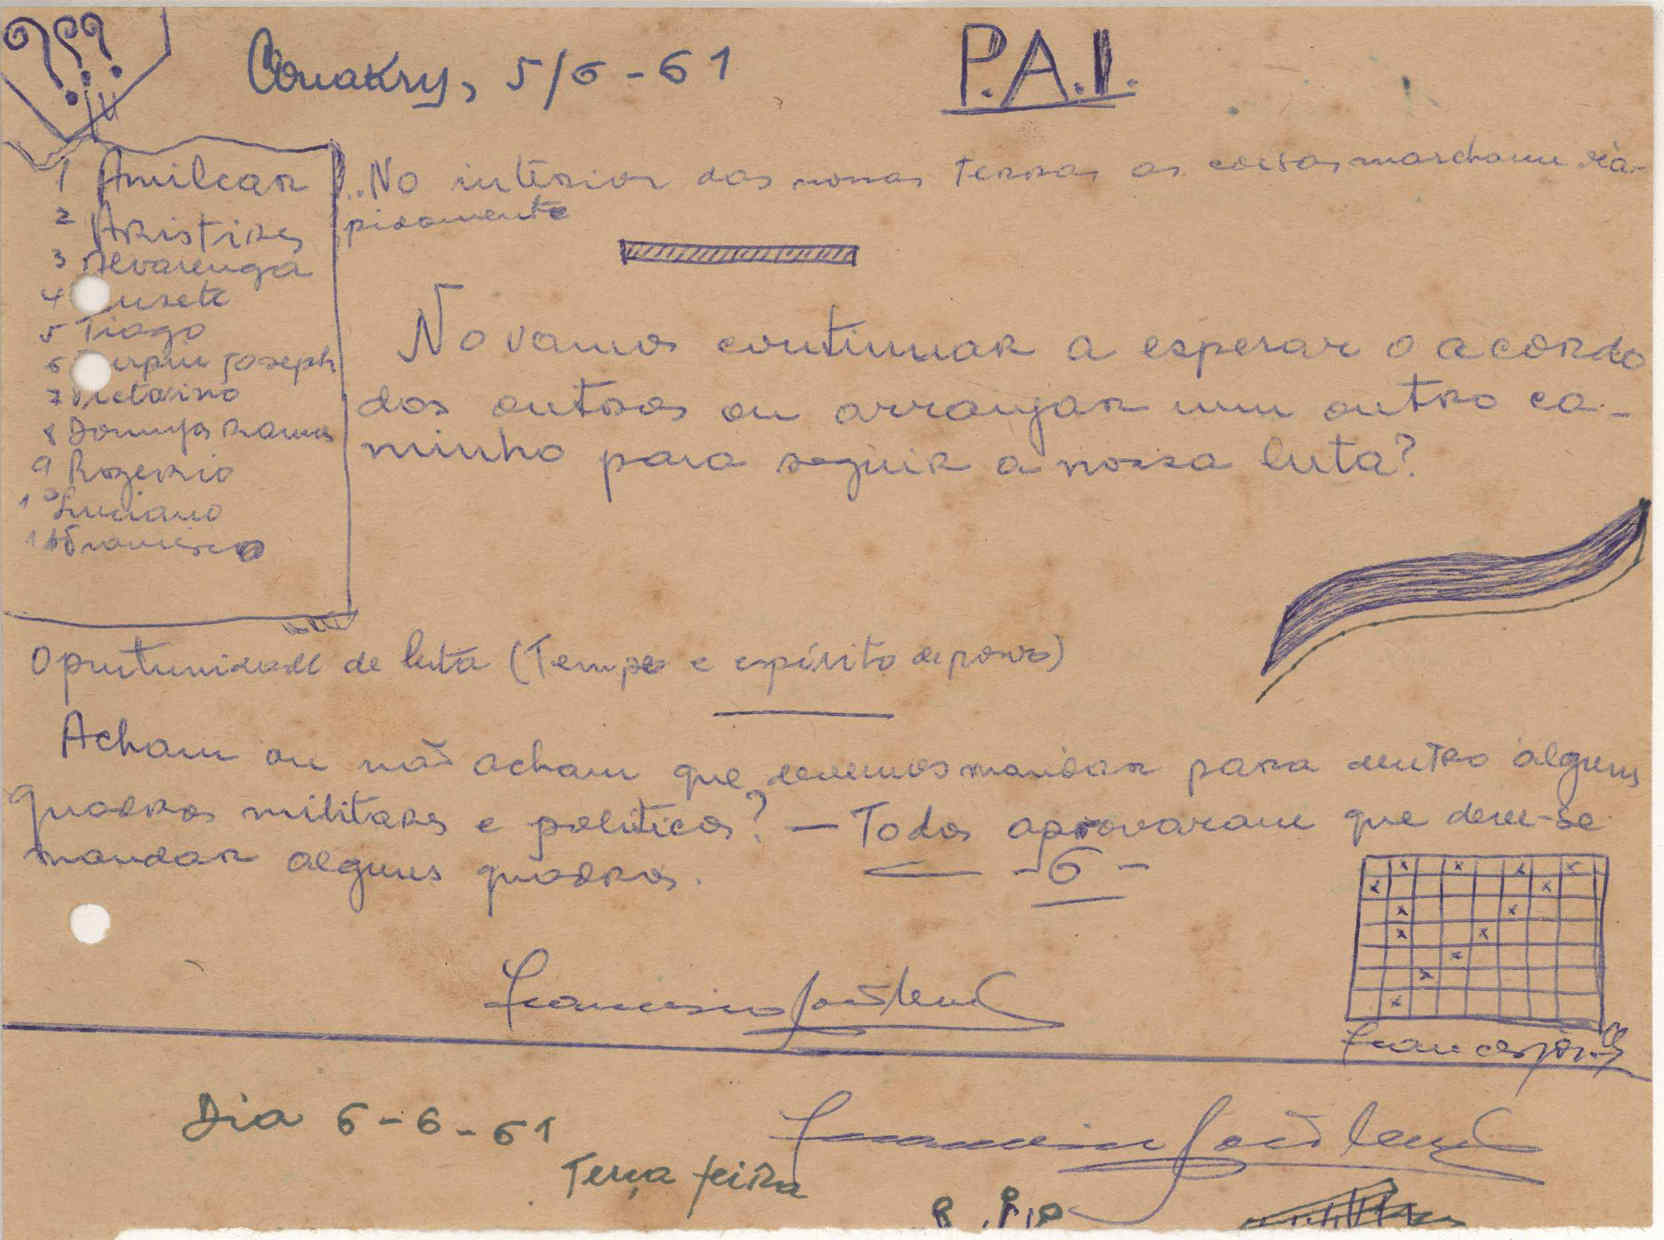 ???
Conakry, 5/6-61
P.A.I.
1 Amilcar
2 Aristides
3 Alvarenga
4 usete
5 Tiago
6 Joseph
7 Victorino
8 Domingos Ramos
9 Rogerio
10 Luciano
11 Francisco
...No interior das nossas terras as coisas marcham rà-
pidamente
No vamos continuar a esperar o acordo
dos outros ou arranjar um outro ca-
minho para seguir a nossa luta?
Oportunidade de luta (Tempo e espírito de povo)
Acham ou não acham que devemos mandar para dentro alguns
quadros militares e politicos? — Todos aprovaram que deve-se
mandar alguns quadros. — -6-
Dia 6-6-61
Terça feira